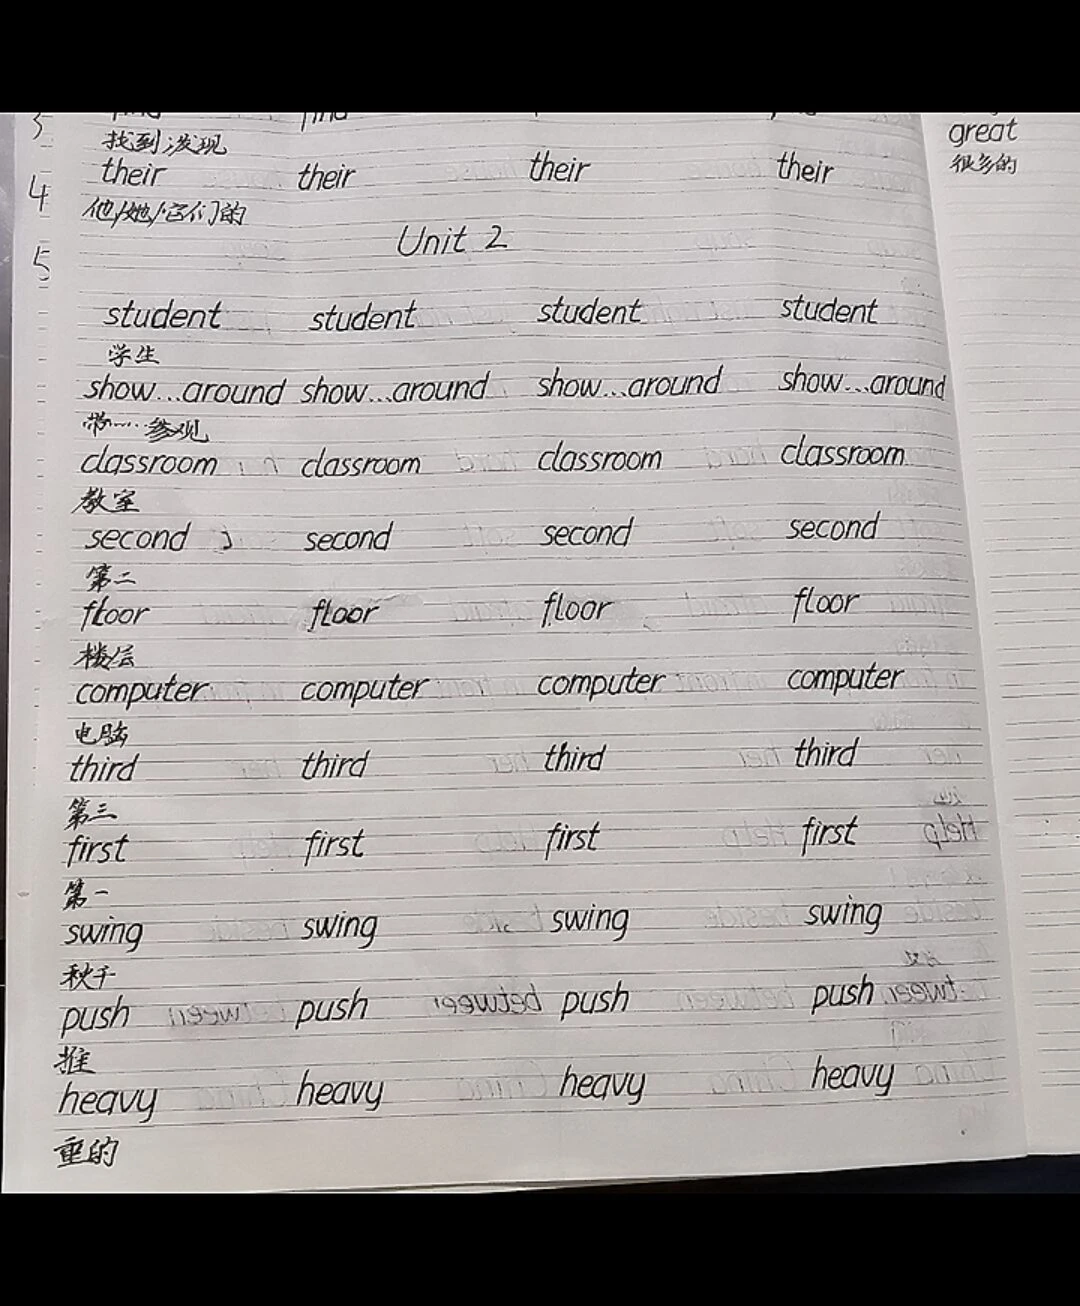 3
找到;发现 great
4 their their their their 很多的
他/她/它们的
5 Unit 2
student student student student
学生
show...around show...around show...around show...around
带……参观
classroom classroom classroom classroom
教室
second second second second
第二
floor floor floor floor
楼层
computer computer computer computer
电脑
third third third third
第三
first first first first
第一
swing swing swing swing
秋千
push push push push
推
heavy heavy heavy heavy
重的